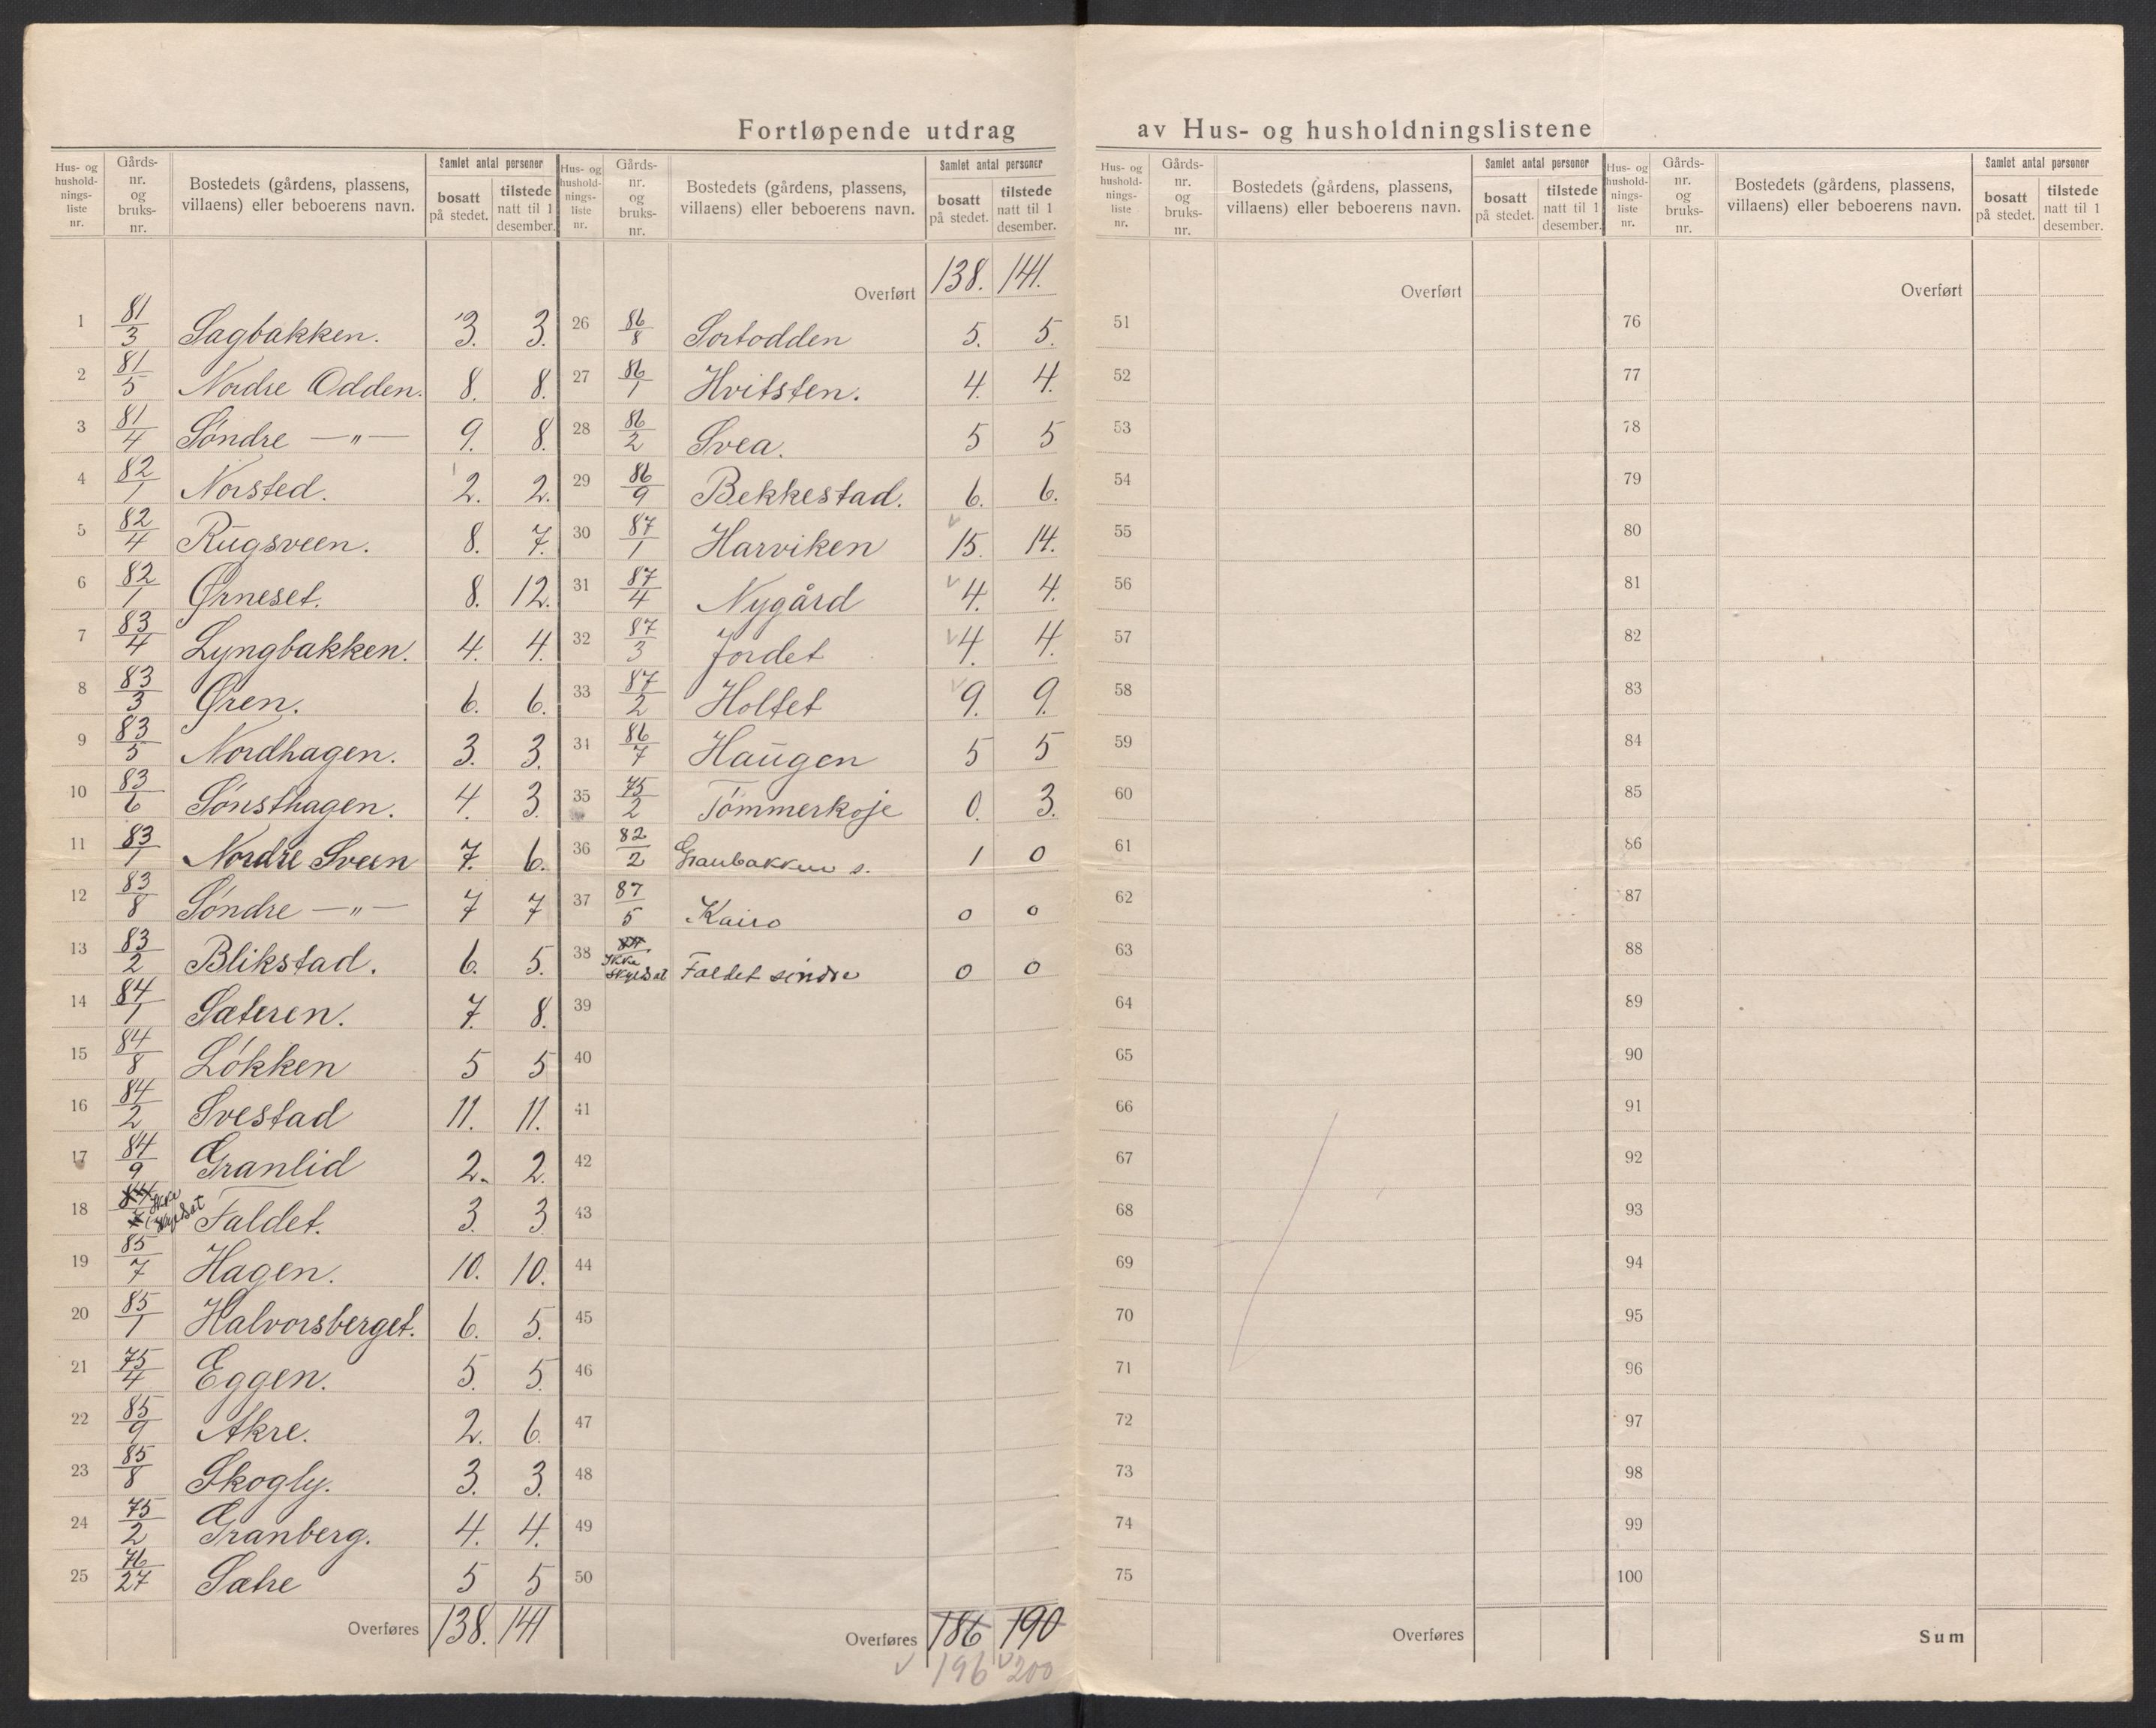 Fortløpende utdrag av Hus- og husholdningslistene
Hus- og hushold-nings-liste nr. | Gårds-nr. og bruks-nr. | Bostedets (gårdens, plassens, villaens) eller beboerens navn. | Samlet antal personer bosatt på stedet. | tilstede natt til 1 desember.
1 81/3 Sagbakken. 3. 3.
2 81/5 Nordre Odden. 8. 8.
3 81/4 Söndre —„— 9. 8.
4 82/1 Norsted. 2. 2.
5 82/4 Rugsveen. 8. 7.
6 82/1 Ørneset. 8. 12.
7 83/4 Lyngbakken. 4. 4.
8 83/3 Øren. 6. 6.
9 83/5 Nordhagen. 3. 3.
10 83/6 Sönsthagen. 4. 3.
11 83/1 Nordre Sveen 7. 6.
12 83/8 Söndre —„— 7 7
13 83/2 Blikstad. 6. 5.
14 84/1 Sæteren. 7. 8.
15 84/8 Lökken 5 5
16 84/2 Svestad 11. 11.
17 84/9 Granlid 2. 2.
18 Ikke skyldsat Faldet. 3. 3
19 85/7 Hagen. 10. 10.
20 85/1 Halvorsberget. 6. 5.
21 75/4 Eggen. 5. 5.
22 85/9 Akre. 2. 6.
23 85/8 Skogly. 3. 3.
24 75/2 Granberg. 4. 4.
25 76/27 Sætre 5 5
Overføres 138. 141
Hus- og hushold-nings-liste nr. | Gårds-nr. og bruks-nr. | Bostedets (gårdens, plassens, villaens) eller beboerens navn. | Samlet antal personer bosatt på stedet. | tilstede natt til 1 desember.
Overført 138. 141.
26 86/8 Sortodden 5. 5.
27 86/1 Hvitsten. 4. 4.
28 86/2 Svea. 5 5
29 86/9 Bekkestad. 6. 6.
30 87/1 Harviken 15. 14.
31 87/4 Nygård 4. 4.
32 87/3 Jordet 4. 4.
33 87/2 Holtet 9. 9.
34 86/7 Haugen 5 5
35 75/2 Tömmerkoje 0. 3.
36 82/2 Granbakken s. 1 0
37 87/5 Kairo 0 0
38 Ikke skyldsat Faldet söndre 0 0
39
40
41
42
43
44
45
46
47
48
49
50
Overføres 186 190
196 200
Hus- og hushold-nings-liste nr. | Gårds-nr. og bruks-nr. | Bostedets (gårdens, plassens, villaens) eller beboerens navn. | Samlet antal personer bosatt på stedet. | tilstede natt til 1 desember.
Overført
51
52
53
54
55
56
57
58
59
60
61
62
63
64
65
66
67
68
69
70
71
72
73
74
75
Overføres
Hus- og hushold-nings-liste nr. | Gårds-nr. og bruks-nr. | Bostedets (gårdens, plassens, villaens) eller beboerens navn. | Samlet antal personer bosatt på stedet. | tilstede natt til 1 desember.
Overført
76
77
78
79
80
81
82
83
84
85
86
87
88
89
90
91
92
93
94
95
96
97
98
99
100
Sum